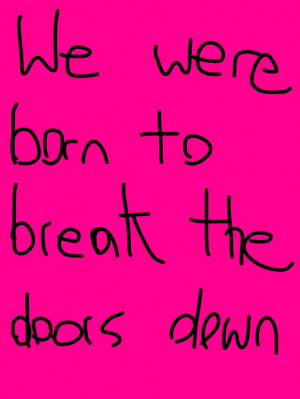 We were
born to
break the
doors down